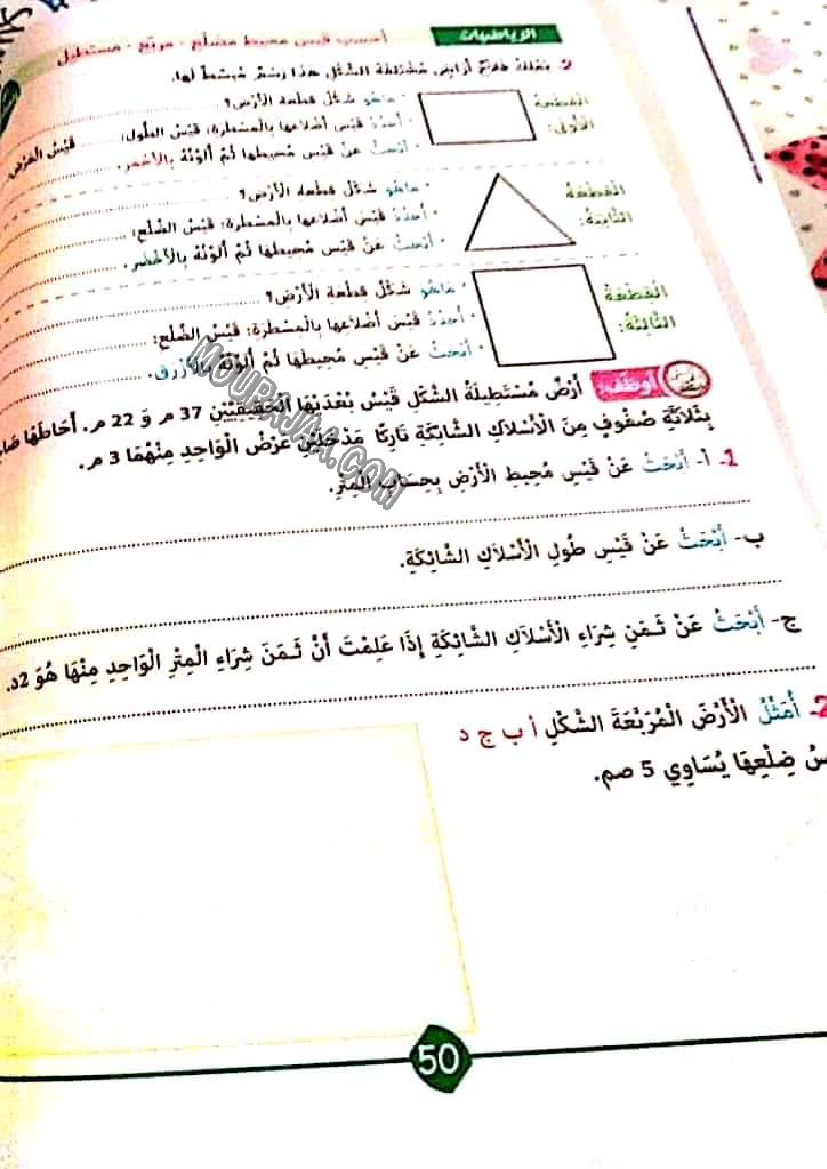 الرياضيات
أحسب قيس محيط مضلع - مربع - مستطيل
2. قطع أراض مُختلفة الشّكل هذا رسْمٌ مُبسّطٌ لها.
القطعة الأولى:
• ما هُو شكْلُ قطعة الأرْض؟
• أُحدّدُ قيْس أضْلاعها بالْمسْطرة: قيْسُ الطُّول: قيْسُ الْعرْض
• أبْحثُ عنْ قيْس مُحيطها ثُمّ أُلوّنُهُ بالأحْمر.
القطعة الثّانية:
• ما هُو شكْلُ قطعة الأرْض؟
• أُحدّدُ قيْس أضْلاعها بالْمسْطرة: قيْسُ الضّلْع:
• أبْحثُ عنْ قيْس مُحيطها ثُمّ أُلوّنُهُ بالأخْضر.
الْقطْعةُ الثّالثةُ:
• ما هُو شكْلُ قطْعة الْأرْض؟
• أُحدّدُ قيْس أضْلاعها بالْمسْطرة: قيْسُ الضّلْع:
• أبْحثُ عنْ قيْس مُحيطها ثُمّ أُلوّنُهُ بالْأزْرق.
أُوظّفُ: أَرْضٌ مُسْتَطِيلَةُ الشَّكْلِ قَيْسُ بُعْدَيْهَا الْحَقِيقِيَّيْنِ 37 م وَ 22 م. أَحَاطَهَا
بِثَلَاثَةِ صُفُوفٍ مِنَ الْأَسْلَاكِ الشَّائِكَةِ تَارِكًا مَدْخَلَيْنِ عَرْضُ الْوَاحِدِ مِنْهُمَا 3 م.
1. أ- أَبْحَثُ عَنْ قَيْسِ مُحِيطِ الْأَرْضِ بِحِسَابِ الْمِتْرِ.
ب- أَبْحَثُ عَنْ قَيْسِ طُولِ الْأَسْلَاكِ الشَّائِكَةِ.
ج- أَبْحَثُ عَنْ ثَمَنِ شِرَاءِ الْأَسْلَاكِ الشَّائِكَةِ إِذَا عَلِمْتَ أَنَّ ثَمَنَ شِرَاءِ الْمِتْرِ الْوَاحِدِ مِنْهَا هُوَ 2د.
2. أُمَثِّلُ الْأَرْضَ الْمُرَبَّعَةَ الشَّكْلِ أ ب ج د
ضِلْعِهَا يُسَاوِي 5 صم.
50
MOURAJAA.COM